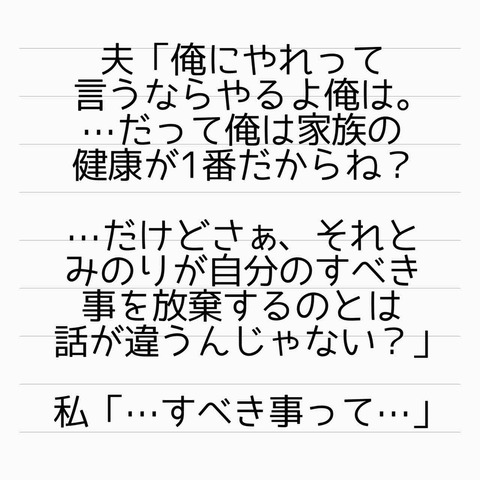 夫「俺にやれって
言うならやるよ俺は。
…だって俺は家族の
健康が1番だからね？
…だけどさぁ、それと
みのりが自分のすべき
事を放棄するのとは
話が違うんじゃない？」
私「…すべき事って…」